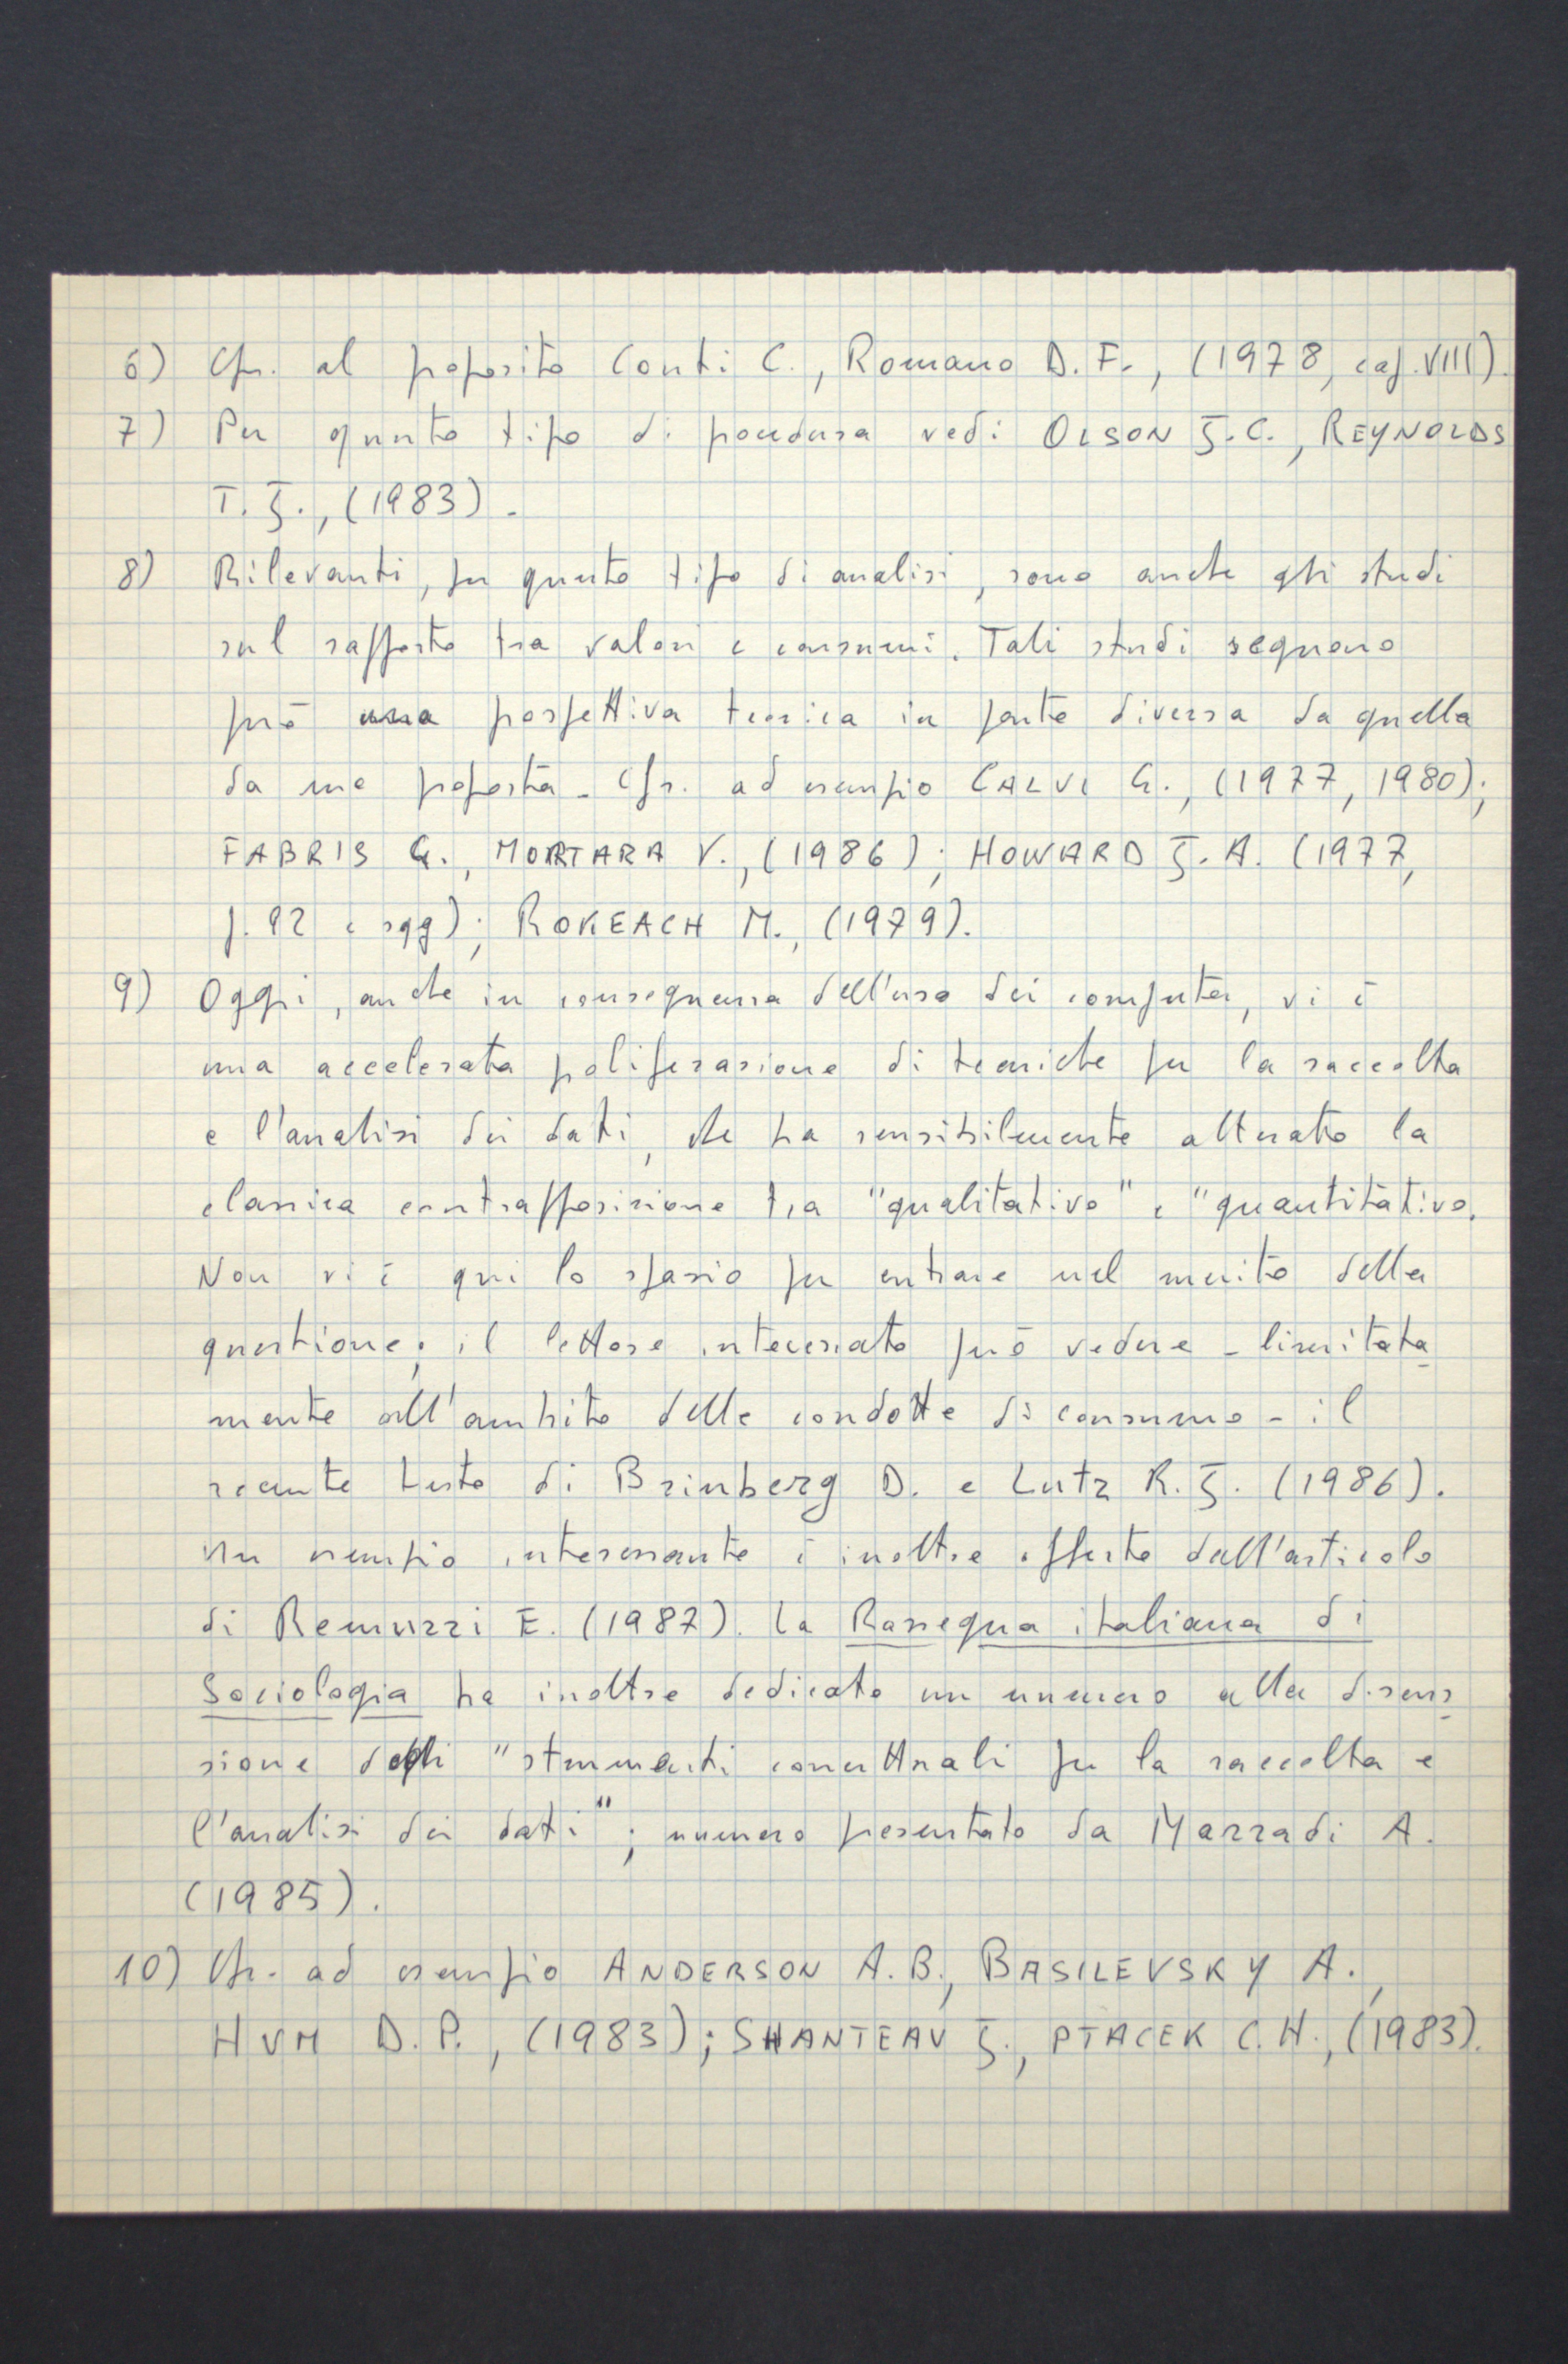 6) Cfr. al proposito Conti C., Romano D. F., (1978, cap. VIII).
7) Per questo tipo di procedura vedi OLSON J.C., REYNOLDS
T. J., (1983).
8) Rilevanti, per questo tipo di analisi, sono anche gli studi
sul rapporto tra valori e consumi. Tali studi seguono
però una prospettiva teorica in parte diversa da quella
da me proposta. Cfr. ad esempio CALVI G., (1977, 1980);
FABRIS G., MORTARA V., (1986); HOWARD J. A. (1977,
p. 92 e sgg); ROKEACH M., (1979).
9) Oggi, anche in conseguenza dell'uso dei computer, vi è
una accelerata proliferazione di tecniche per la raccolta
e l'analisi dei dati, che ha sensibilmente alterato la
classica contrapposizione tra "qualitativo" e "quantitativo.
Non vi è qui lo spazio per entrare nel merito della
questione; il lettore interessato può vedere - limitata
mente all'ambito delle condotte di consumo - il
recente testo di Brinberg D. e Lutz R. J. (1986).
Un esempio interessante è inoltre offerto dall'articolo
di Remuzzi E. (1987). La Rassegna italiana di
Sociologia ha inoltre dedicato un numero alla discus
sione degli "strumenti concettuali per la raccolta e
l'analisi dei dati"; numero presentato da Marradi A.
(1985).
10) Cfr. ad esempio ANDERSON A. B., BASILEVSKY A.,
HUM D. P., (1983); SHANTEAU J., PTACEK C. H., (1983).